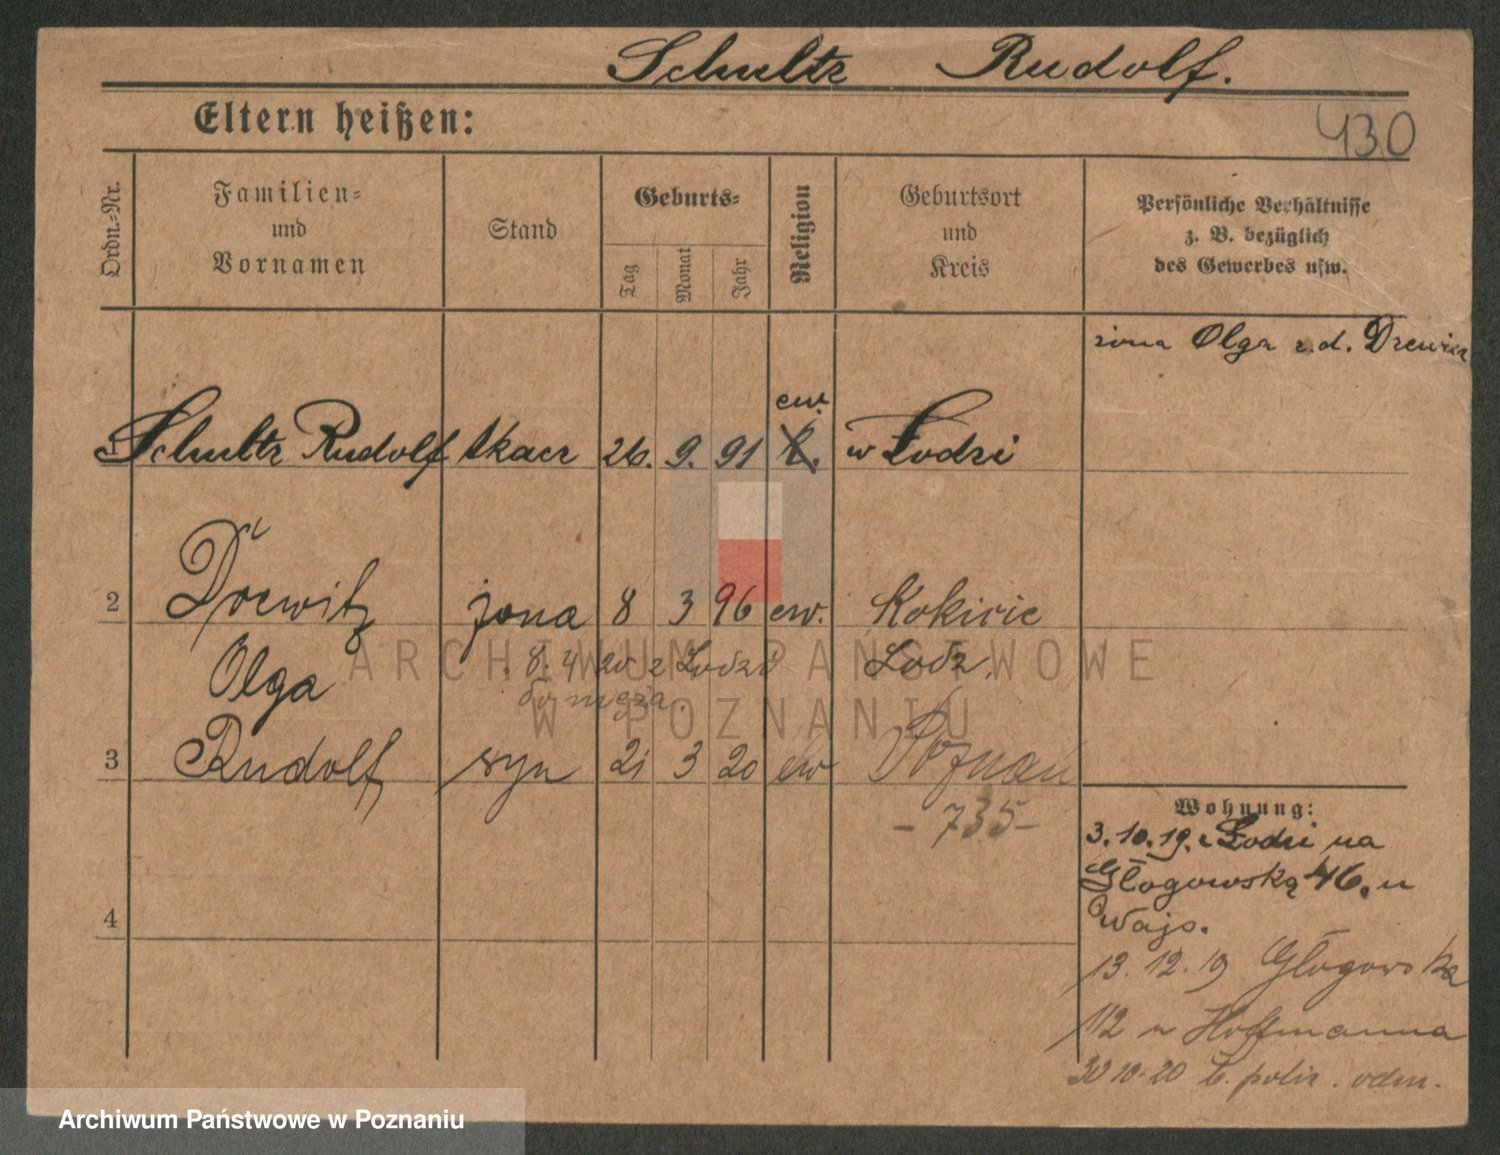 Schultz Rudolf.
Eltern heißen:
430
Ordn.-Nr.
Familien-
und
Vornamen
Stand
Geburts-
Tag
Monat
Jahr
Religion
Geburtsort
und
Kreis
Persönliche Verhältnisse
z. B. bezüglich
des Gewerbes usw.
żona Olga z.d. Drewicz
ew.
Schultz Rudolf tkacz 26. 9. 91 w Łodzi
2 Drewitz żona 8 3 96 ew. Kokicie
Olga 8. 4 20 z Łodzi Łodz.
do męża.
3 Rudolf syn 21 3 20 ew Poznań
- 735 -
4
Wohnung:
3. 10. 19. z Łodzi na
Głogowską 46. u
Wajs.
13. 12. 19 Głogowska
112 u Hoffmanna
30 10 20 polic. odm.
ARCHIWUM PAŃSTWOWE
W POZNANIU
Archiwum Państwowe w Poznaniu